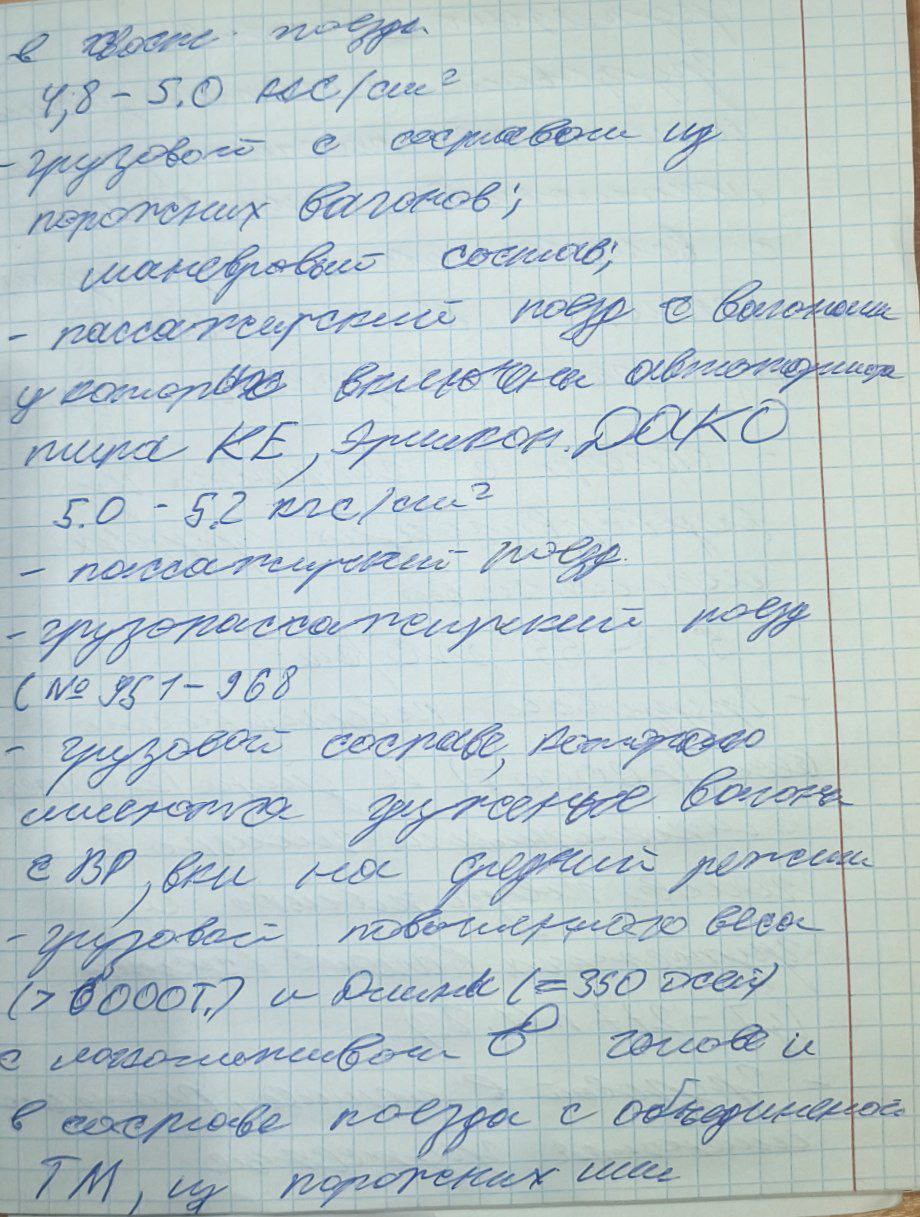 в хвосте поезда
4,8 – 5.0 кгс/см²
- грузовой с составом из
порожних вагонов;
маневровый состав;
- пассажирский поезд с вагонами
у которых включены автотормоза
типа КЕ, Эрликон. ДАКО
5.0 - 5.2 кгс/см²
- пассажирский поезд.
- грузопассажирский поезд
(№ 951 – 968
- грузовой составе, которого
имеются груженые вагоны
с ВР, вкл на средний режим
- грузовой повышенного веса
(> 6000Т.) и длины (= 350 осей)
с локомотивом в голове и
в составе поезда с объединеной
ТМ, из порожних или